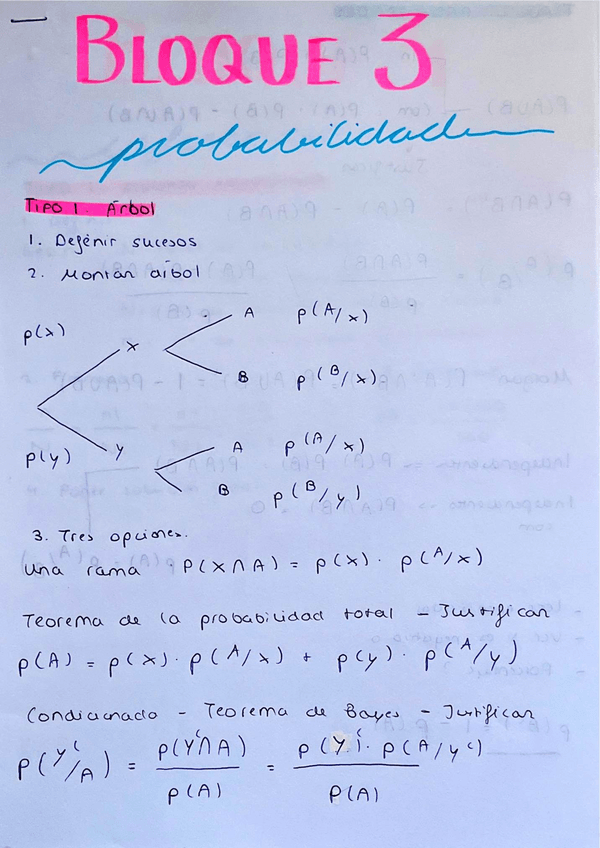 BLOQUE 3
probabilidad
TIPO 1. Árbol
1. Definir sucesos
2. Montar árbol
p(x) X A p(A/x)
B p(B/x)
p(y) Y A p(A/x)
B p(B/y)
3. Tres opciones.
Una rama P(X∩A) = p(x) · p(A/x)
Teorema de la probabilidad total - Justificar
p(A) = p(x) · p(A/x) + p(y) · p(A/y)
Condicionado - Teorema de Bayes - Justificar
p(Yᶜ/A) = p(Yᶜ∩A) / p(A) = p(Yᶜ) · p(A/yᶜ) / P(A)